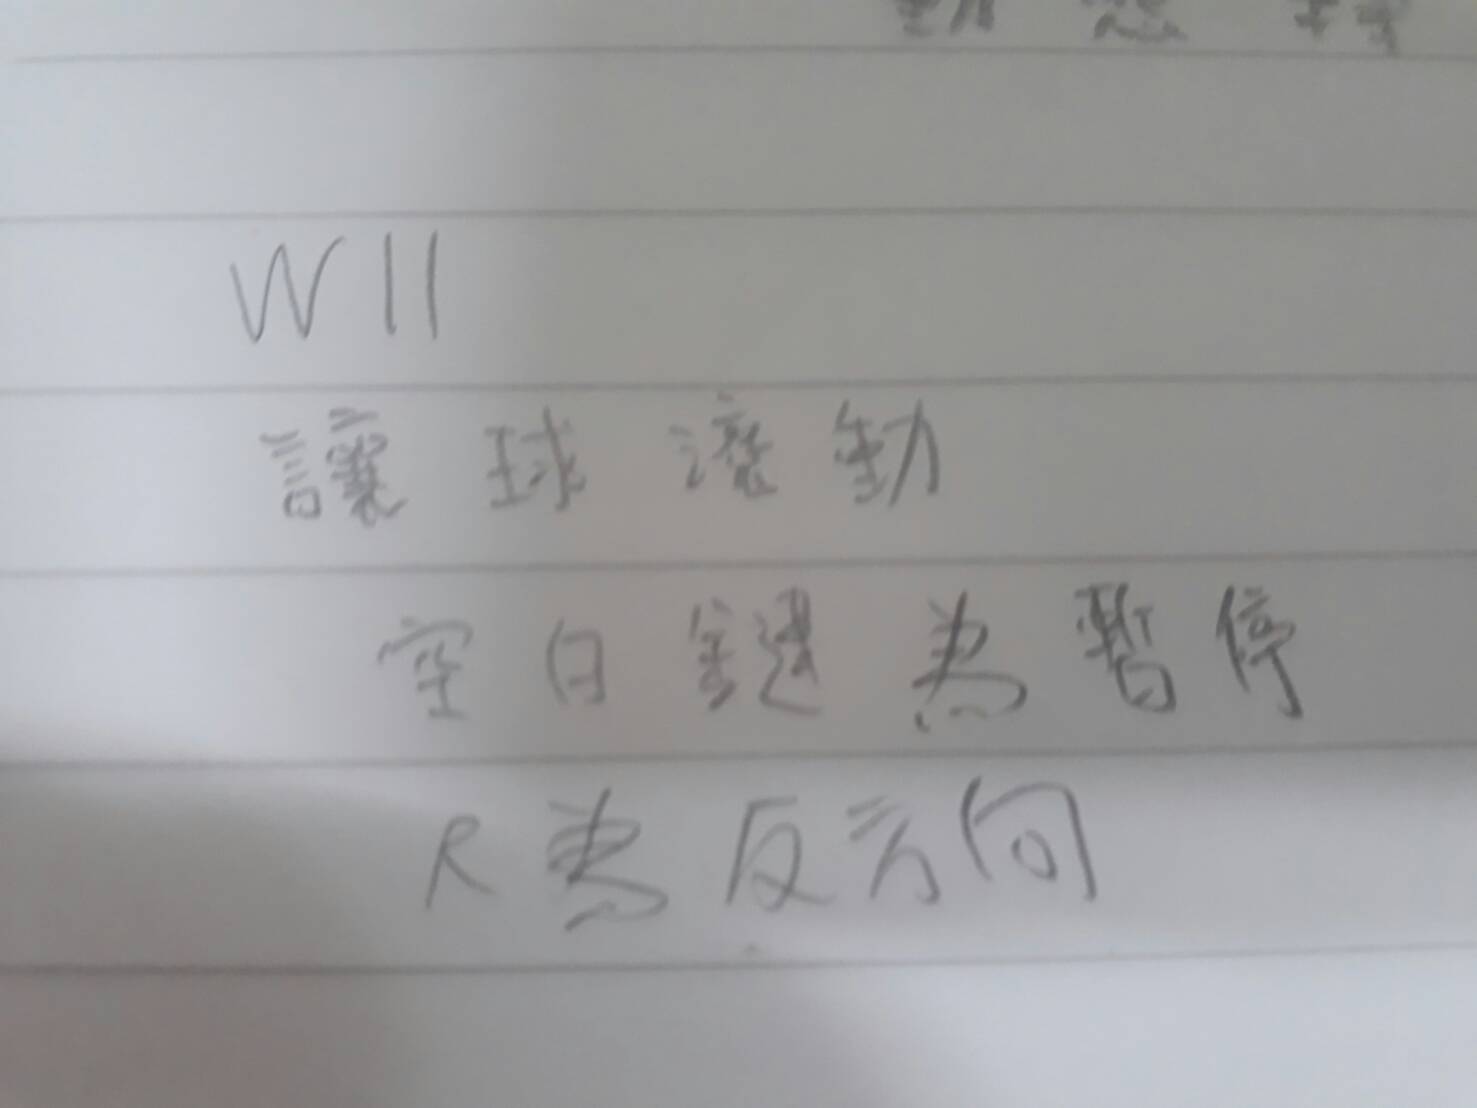 W11
讓球滾動
空白鍵為暫停
R為反方向